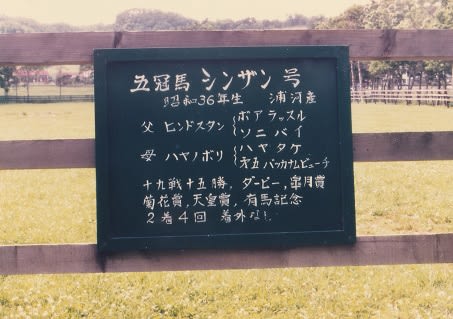 五冠馬 シンザン 号
昭和36年生 浦河産
父 ヒンドスタン { ボアラッスル
ソニバイ
母 ハヤノボリ { ハヤタケ
第五バッカナムビューチ
十九戦十五勝, ダービー, 皐月賞
菊花賞, 天皇賞, 有馬記念
2着4回 着外なし.